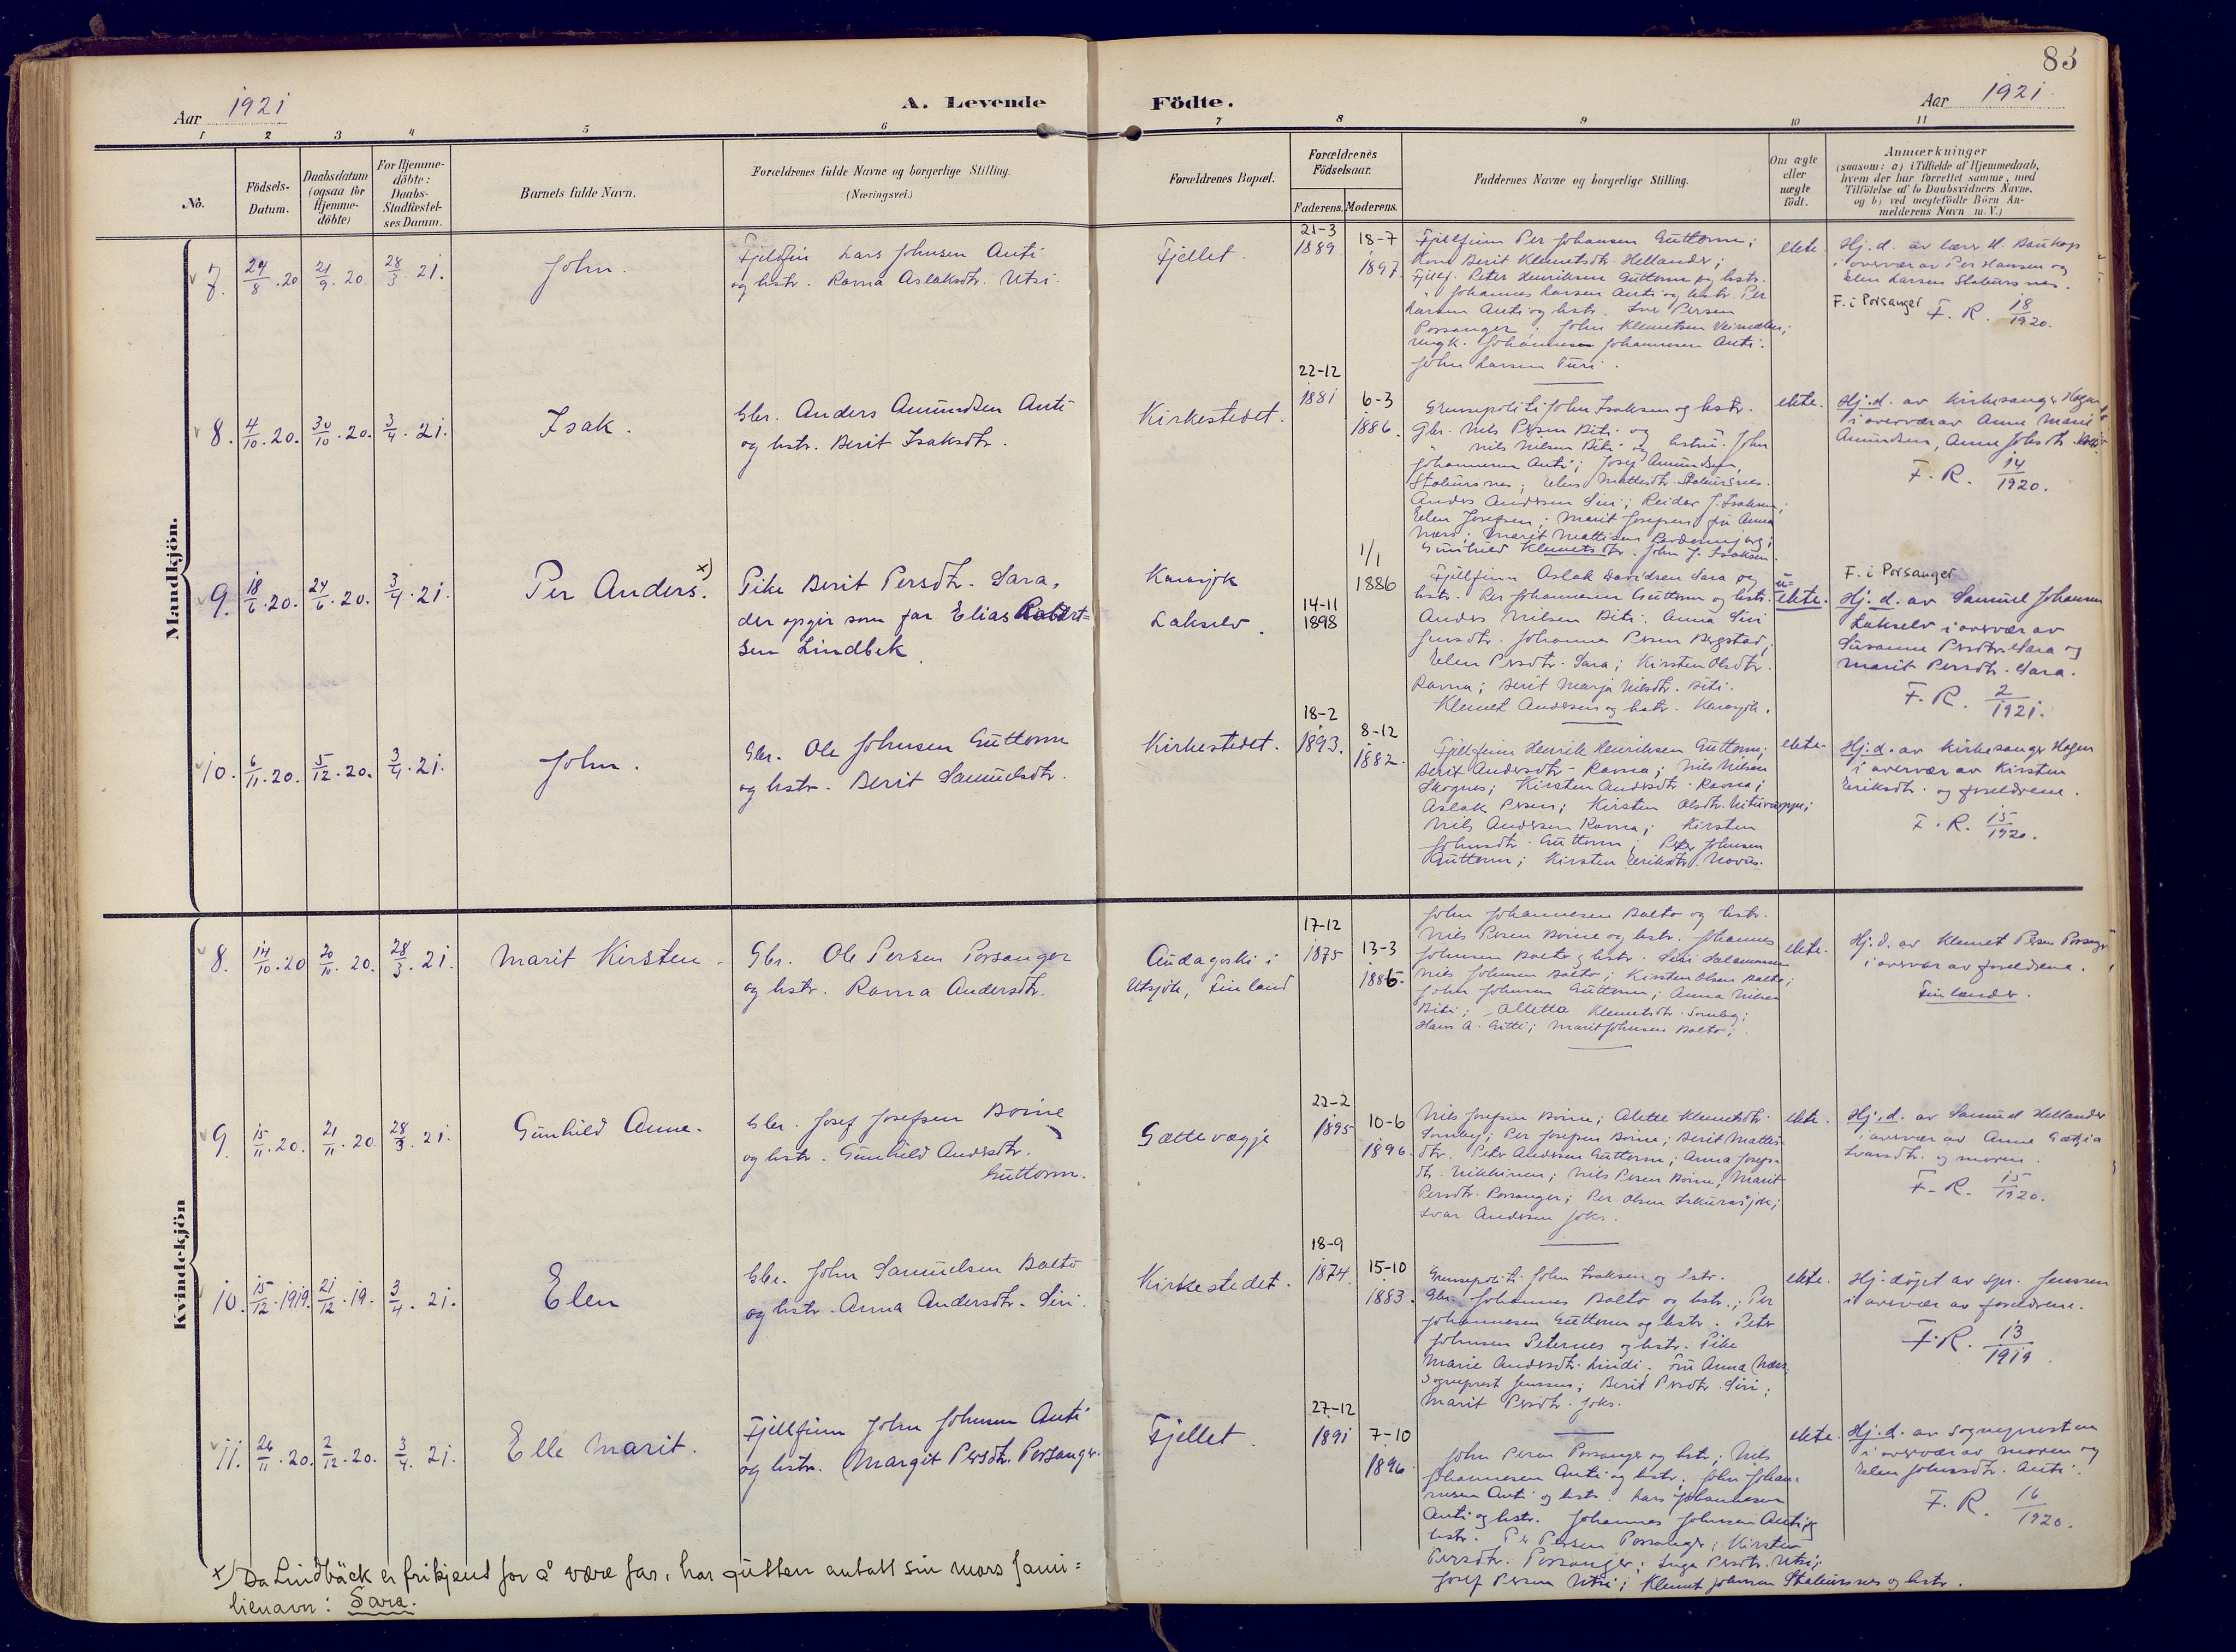 83
Aar 1921
A. Levende Födte.
Aar 1921
1 2 3 4 5 6 7 8 9 10 11
No.
Födsels-Datum.
Daabsdatum (ogsaa for Hjemme-döbte)
For Hjemme-döbte: Daabs-Stadfæstel-ses Datum.
Barnets fulde Navn.
Forældrenes fulde Navne og borgerlige Stilling.
(Næringsvei.)
Forældrenes Bopæl.
Forældrenes Födselsaar.
Faderens. Moderens.
Faddernes Navne og borgerlige Stilling.
Om ægte eller uægte födt.
Anmærkninger
(saasom: a) i Tilfælde af Hjemmedaab,
hvem der har forrettet samme, med
Tilföielse af to Daabsvidners Navne,
og b) ved uægtefödte Börn An-
melderens Navn m. V.)
Mandkjön.
7. 24/8.20 21/9.20 28/3.21. John.
Fjeldfin Lars Johnsen Anti
og hstr. Ravna Aslaksdtr. Utsi.
Fjellet.
21-3 1889
18-7 1897.
Fjellfinn Per Johansen Guttorm;
Kone Berit Klemetsdtr. Hellander;
Fjellf. Peter Henriksen Guttorm og hstr.
" Johannes Larsen Anti og hstr. Per
Larsen Anti og hstr. Iver Persen
Porsanger; John Klemetsen
ungk. Johannes Johannesen Anti.
John Larsen Turi.
ekte.
Hj. d. av lærer H.
i overvær av Per Hansen og
Elen Larsen Stabursnes.
F. i Porsanger F. R. 18/1920.
8. 4/10.20. 30/10.20. 3/4.21. Isak.
Gbr. Anders Amundsen Anti
og hstr. Berit Isaksdtr.
Kirkestedet.
22-12 1881
6-3 1886.
Grensepoliti John Isaksen og hstr.
Gbr. Nils Persen Biti og
" Nils Nielsen Biti og hstru. John
Johannesen Anti; Josef Amundsen,
Stabursnes; Elen Mattisdtr. Stabursnes.
Anders Andersen Siri; Reidar J. Isaksen;
Elen Josefsen; Marit Josefsen; fru Anna
Næss; Marit Mattisen
Gunhild Klemetsdtr. John J. Isaksen.
ekte.
Hj. d. av kirkesanger Hagen
i overvær av Anne Marie
Amundsen, Anne Johsdtr.
F. R. 14/1920.
9. 18/6.20. 24/6.20. 3/4.21. Per Anders. x)
Pike Berit Persdtr. Sara,
der opgir som far Elias Robert=
sen Lindbek.
Karasjok
Lakselv.
14-11 1898
1/1 1886
Fjellfinn Aslak Davidsen Sara og
hstr. Per Johannesen Guttorm og hstr.
Anders Nilsen Biti. Anna Siri
Jensdtr. Johannes Persen Bergstad;
Elen Persdtr. Sara; Kirsten Olsdtr.
Ravna; Berit Marja Nilsdtr. Biti.
Klemet Andersen og hstr. Karasjok.
u=
ekte.
F. i Porsanger
Hj. d. av Samuel Johansen
Lakselv i overvær av
Susanne Persdtr. Sara og
Marit Persdtr. Sara.
F. R. 2/1921.
10. 6/11.20. 5/12.20. 3/4.21. John.
Gbr. Ole Johnsen Guttorm
og hstr. Berit Samuelsdtr.
Kirkestedet.
18-2 1893.
8-12 1882.
Fjellfinn Henrik Henriksen Guttorm;
Berit Andersdtr. Ravna; Nils Nilsen
Skognes; Kirsten Andersdtr. Ravna;
Aslak Persen; Kirsten Olsdtr.
Nils Andersen Ravna; Kirsten
Johnsdtr. Guttorm; Peder Johnsen
Guttorm; Kirsten Eriksdtr.
ekte.
Hj. d. av kirkesanger Hagen
i overvær av Kirsten
Eriksdtr. og foreldrene.
F. R. 15/1920.
Kvindekjön
8. 14/10.20 20/11.20. 28/3.21. Marit Kirsten.
Gbr. Ole Persen Porsanger
og hstr. Ravna Andersdtr.
Audagoski i
Utsjok, Finland
17-12 1875
13-3 1885.
John Johannesen Balto og hstr.
Nils Persen Boine og hstr. Johannes
Johnsen Balto og hstr. Siri Salamonsen
Nils Johnsen Balto; Kirsten Olsen Balto;
John Johnsen Guttorm; Anna Nilsen
Biti; Alletta Klemetsdtr. Somby;
Hans A. Gitti; Marit Johnsen Balto;
ekte.
Hj. d. av Klemet Persen Porsanger
i overvær av foreldrene.
Finlænder.
9. 15/11.20. 21/11.20 28/3.21. Gunhild Anne.
Gbr. Josef Josefsen Boine
og hstr. Gunhild Andersdtr.
Guttorm.
Gættevægje
22-2 1895
10-6 1896.
Nils Josefsen Boine; Alette Klemetsdtr.
Somby; Per Josefsen Boine; Berit Mattis-
dtr. Peter Andersen Guttorm; Anna Josefs-
dtr. Nikkinen; Nils Persen Boine; Marit
Persdtr. Porsanger; Per Olsen Iskurasjok;
Ivar Andersen Joks.
ekte.
Hj. d. av Samuel Hellander
i overvær av Anne
Ivarsdtr. og moren.
F. R. 15/1920.
10. 15/12.1919. 21/12.19. 3/4.21. Elen
Gbr. John Samuelsen Balto
og hstr. Anna Andersdtr. Siri.
Kirkestedet.
18-9 1874.
15-10 1883.
Grensepoliti John Isaksen og hstr.
Gbr. Johannes Balto og hstr.; Per
Johannesen Guttorm og hstr. Peter
Johnsen Peternes og hstr. Pike
Marie Andersdtr. Lindi. Fru Anna Næss.
Sogneprest Jenssen; Berit Persdtr. Siri;
Marit Persdtr. Joks.
ekte.
Hj. døpt av spr. Jenssen
i overvær av foreldrene.
F. R. 13/1919.
11. 26/11.20. 2/12.20. 3/4.21. Elle Marit.
Fjellfinn John Johnsen Anti
og hstr. Margit Persdtr. Porsanger.
Fjellet.
27-12 1891
7-10 1896.
John Persen Porsanger og hstr; Nils
Johannesen Anti og hstr; John Johan-
nesen Anti og hstr. Lars Johannesen
Anti og hstr. Johannes Johnsen Anti og
hstr. Per Persen Porsanger; Kirsten
Persdtr. Porsanger; Inga Persdtr. Utsi;
Josef Persen Utsi; Klemet Johnsen Stabursnes og hstr.
ekte.
Hj. d. av sognepresten
i overvær av moren og
Elen Johnsdtr. Anti.
F. R. 16/1920.
x) Da Lindbäck er frikjent for å være far, har gutten antatt sin mors fami=
lienavn: Sara.